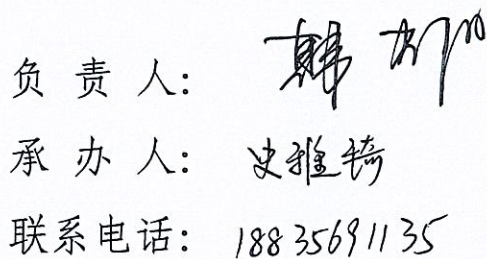 负责人：韩
承办人：史雅琦
联系电话：18835691135